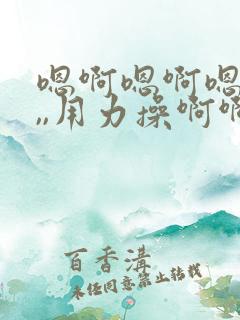 嗯啊嗯啊嗯
,,用力操啊啊
百香溝
未任同意禁止转载